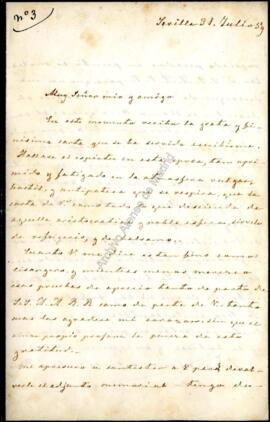 nº 3
Sevilla 31. Julio 59
Muy Señor mio y amigo
En este momento recibo la grata y fi-
nisima carta que se ha servido escribirme.
Hallase el espiritu en esta epoca, tan opri-
mido y fatigado en la atmosfera vulgar,
hostil, y antipatica que se respira, que la
carta de V. como todo lo que desciende de
aquella aristocratica y noble esfera, sirvele
de refrigerio, y de balsamo.
Cuanto V. me dice es tan fino como
lisongero, y mientras menos merezco
esas pruebas de aprecio tanto de parte de
S.S. A.A. R.R. como de parte de V. tanto
mas las agradece mi corazon sin que
amor propio profane la pureza de esta
gratitud.
Me apresuro a contestar a V. para devol-
verle el adjunto memorial - tengo du-
Archivo Ateneo de Madrid